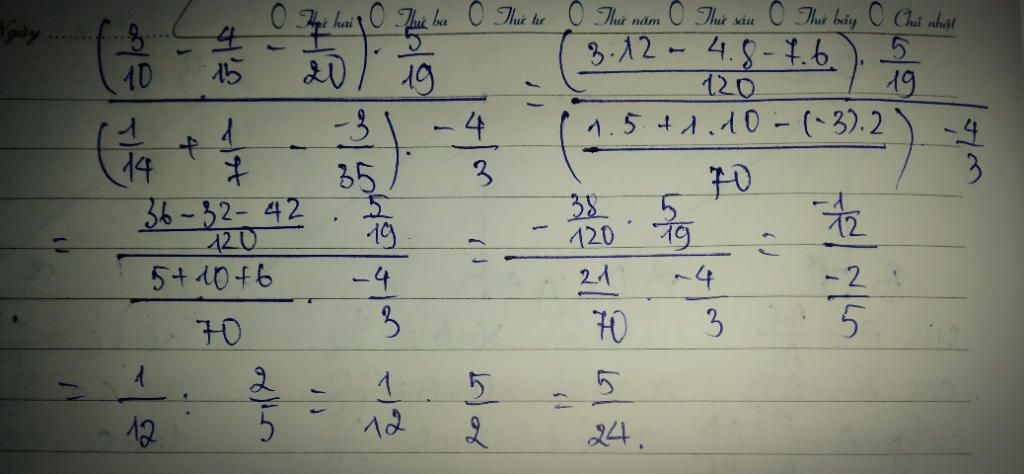 Ngày .......... Thứ hai Thứ ba Thứ tư Thứ năm Thứ sáu Thứ bảy Chủ nhật
((3/10 - 4/15 - 7/20) · 5/19) / ((1/14 + 1/7 - -3/35) · -4/3) = ((3·12 - 4.8 - 7.6)/120 · 5/19) / ((1.5 + 1.10 - (-3).2)/70 · -4/3)
= ((36 - 32 - 42)/120 · 5/19) / ((5 + 10 + 6)/70 · -4/3) = (-38/120 · 5/19) / (21/70 · -4/3) = (-1/12) / (-2/5)
= 1/12 : 2/5 = 1/12 · 5/2 = 5/24.